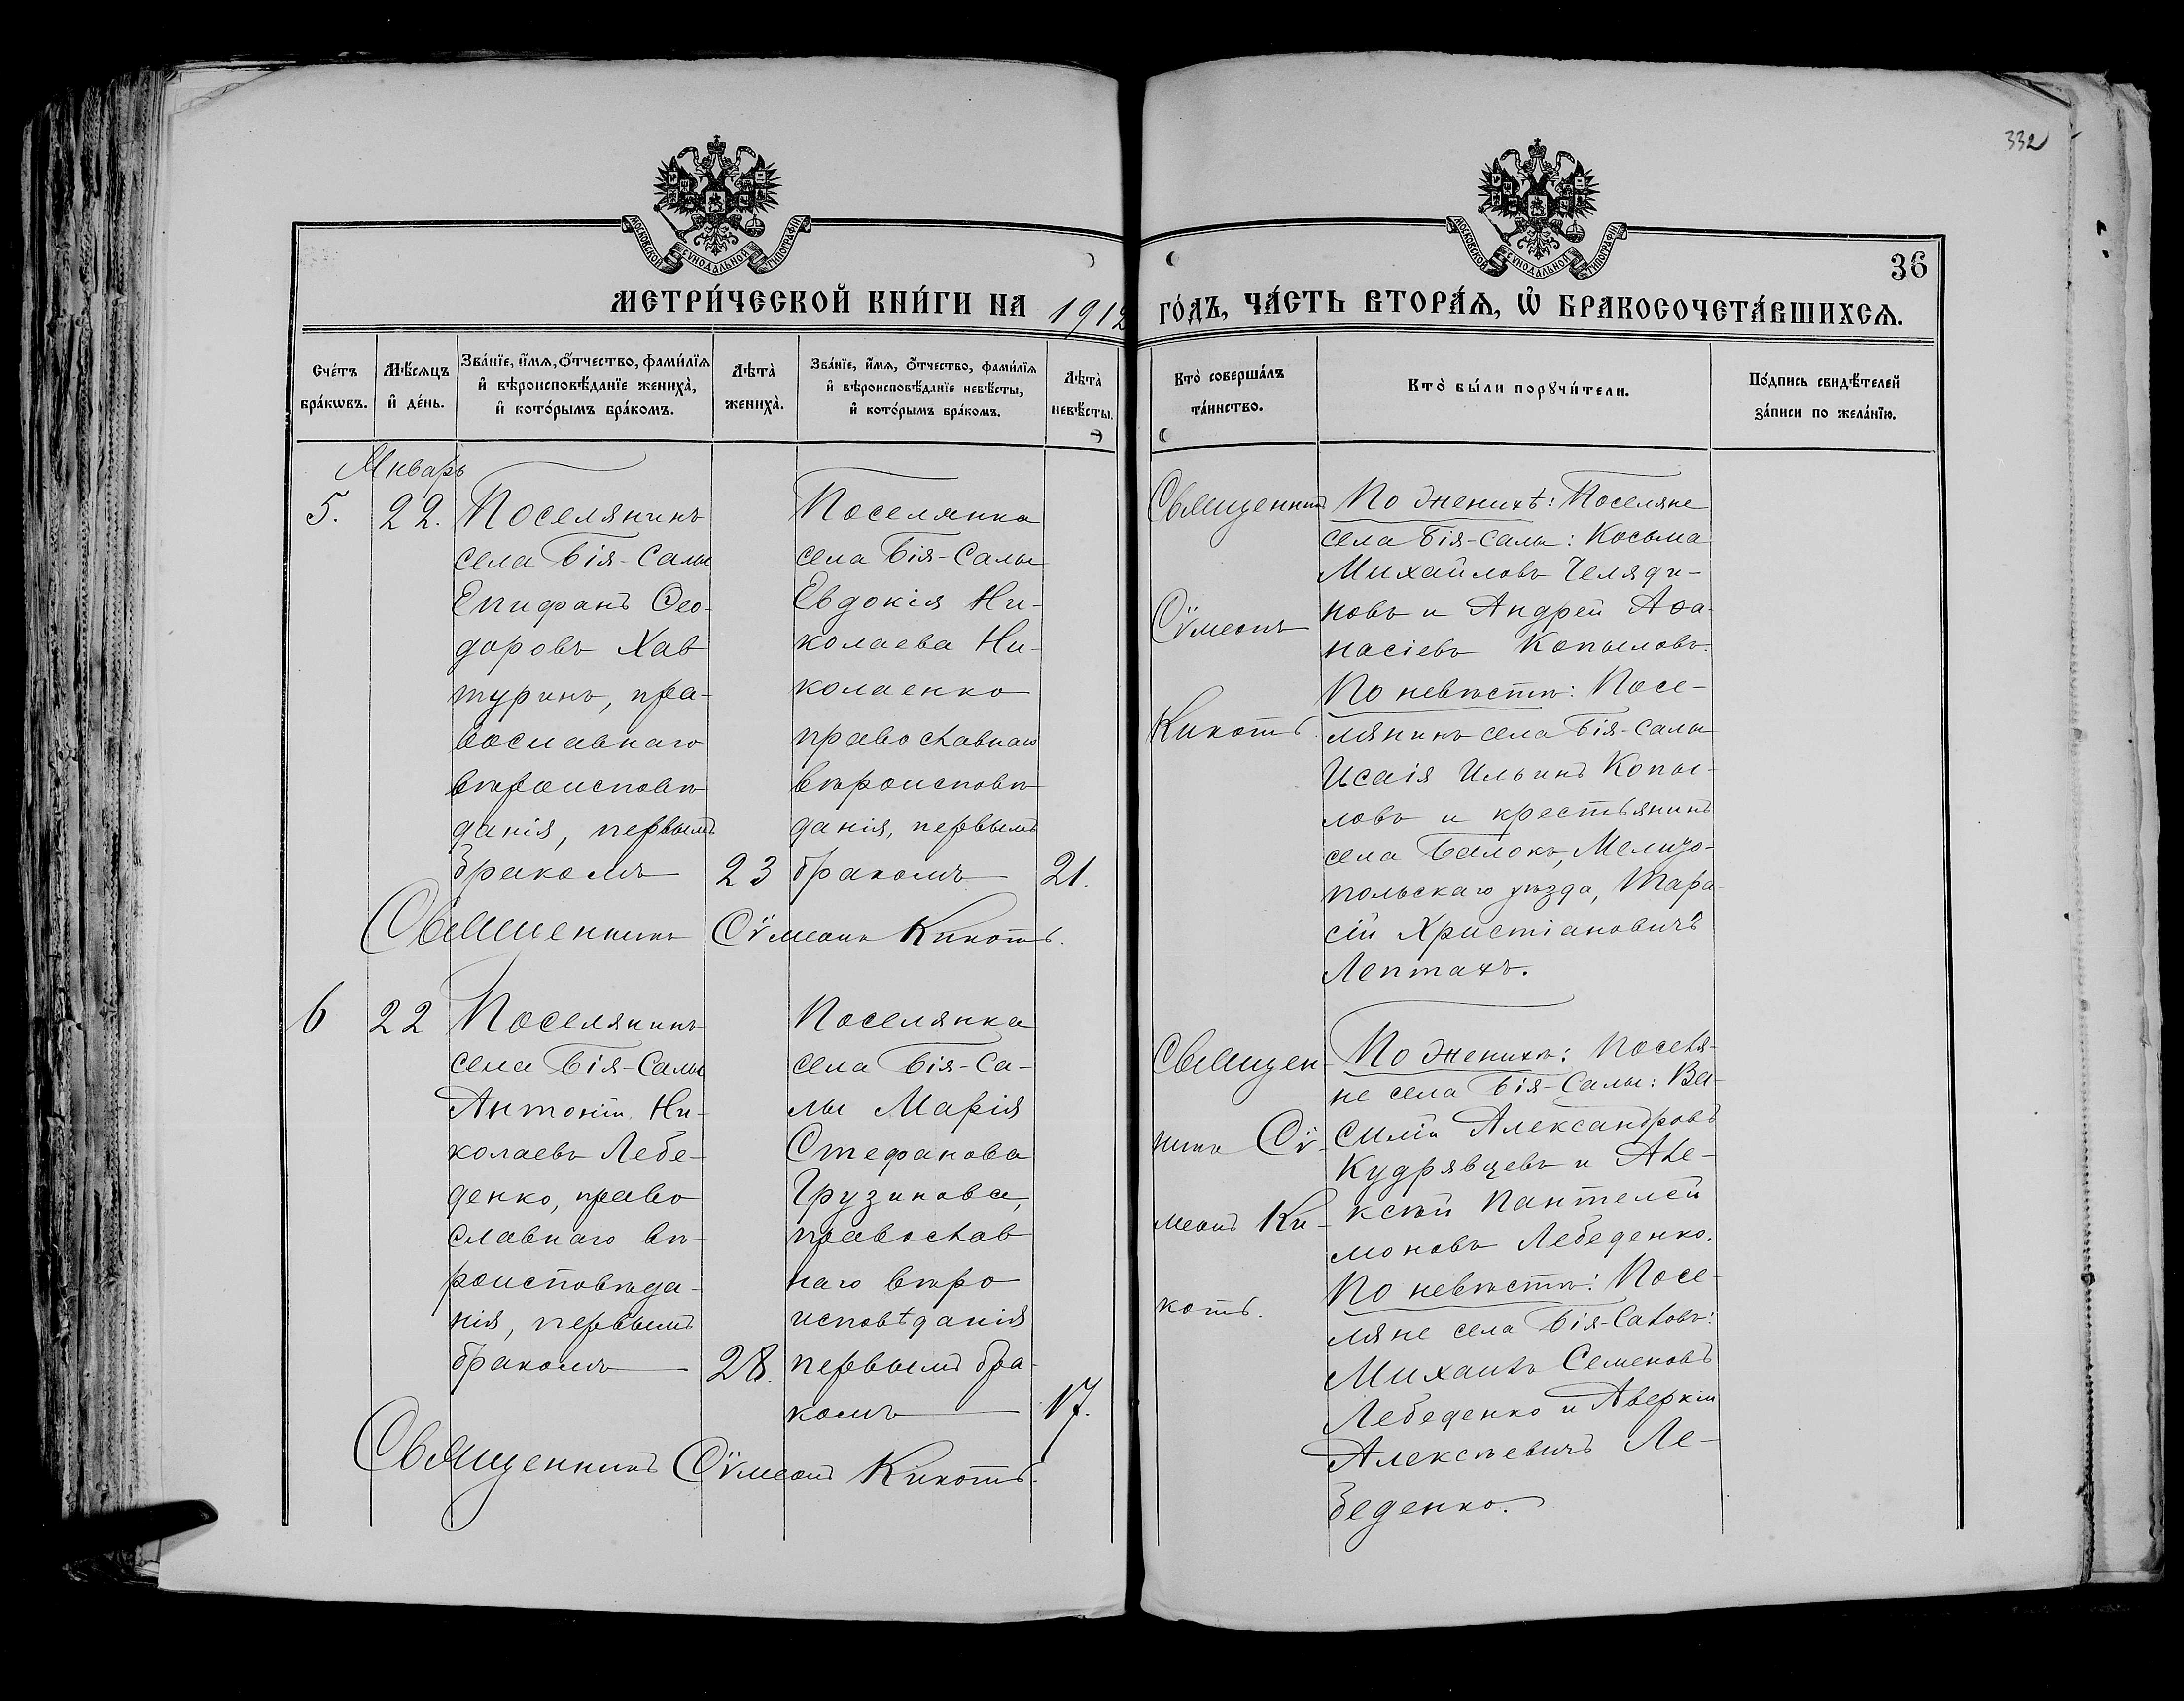 332
МОСКОВСКОЙ СѴНОДАЛЬНОЙ ТИПОГРАФІИ
МОСКОВСКОЙ СѴНОДАЛЬНОЙ ТИПОГРАФІИ
36
МЕТРИ́ЧЕСКОЙ КНИ́ГИ НА 1912 ГО́ДЪ, ЧА́СТЬ ВТОРА́Ѧ, Ѽ БРАКОСОЧЕТА́ВШИХСѦ.
Сче́тъ
бра́кѡвъ.
Мѣ́сѧцъ
и҆ де́нь.
Зва́нїе, и҆́мѧ, ѻ҆́тчество, фами́лїѧ
и҆ вѣроисповѣ́данїе жениха̀,
и҆ кото́рымъ бра́комъ.
Лѣта̀
жениха̀.
Зва́нїе, и҆́мѧ, ѻ҆́тчество, фами́лїѧ
и҆ вѣроисповѣ́данїе невѣ́сты,
и҆ кото́рымъ бра́комъ.
Лѣта̀
невѣ́сты.
Кто̀ соверша́лъ
та́инство.
Кто̀ бы́ли порꙋчи́тели.
По́дпись свидѣ́телей
за́писи по жела́нїю.
Январь
5.
22.
Поселянинъ
села Бія-Салы
Епифанъ Ѳео-
доровъ Хав
туринъ, пра-
вославнаго
вѣроисповѣ
данія, первымъ
бракомъ
23
Поселянка
села Бія-Салы
Евдокія Ни-
колаева Ни-
колаенко
православнаго
вѣроисповѣ
данія, первымъ
бракомъ
21.
Священникъ
Сѵмеонъ
Кикоть.
По женихѣ: Поселяне
села Бія-Салы: Косьма
Михайловъ Челяди-
новъ и Андрей Аѳа-
насіевъ Копыловъ.
По невѣстѣ: Посе-
лянинъ села Бія-Салы
Исаія Ильинъ Копы-
ловъ и крестьянинъ
села Балокъ, Мелито-
польскаго уѣзда, Тара-
сій Христіановичъ
Лептахъ.
Священникъ Сѵмеонъ Кикоть.
6
22
Поселянинъ
села Бія-Салы
Антоній Ни-
колаевъ Лебе-
денко, право
славнаго вѣ
роисповѣда-
нія, первымъ
бракомъ
28.
Поселянка
села Бія-Са-
лы Марія
Стефанова
Грузинова,
православ
наго вѣро
исповѣданія
первымъ бра-
комъ
17.
Священ-
никъ Сѵ-
меонъ Ки-
коть.
По женихѣ: Поселя-
не села Бія-Салы: Ва-
силій Александровъ
Кудрявцевъ и Але-
ксѣй Пантелей
моновъ Лебеденко.
По невѣстѣ: Посе-
ляне села Бія-Саловъ:
Михаилъ Семеновъ
Лебеденко и Аверкій
Алексѣевичъ Ле-
беденко.
Священникъ Сѵмеонъ Кикоть.